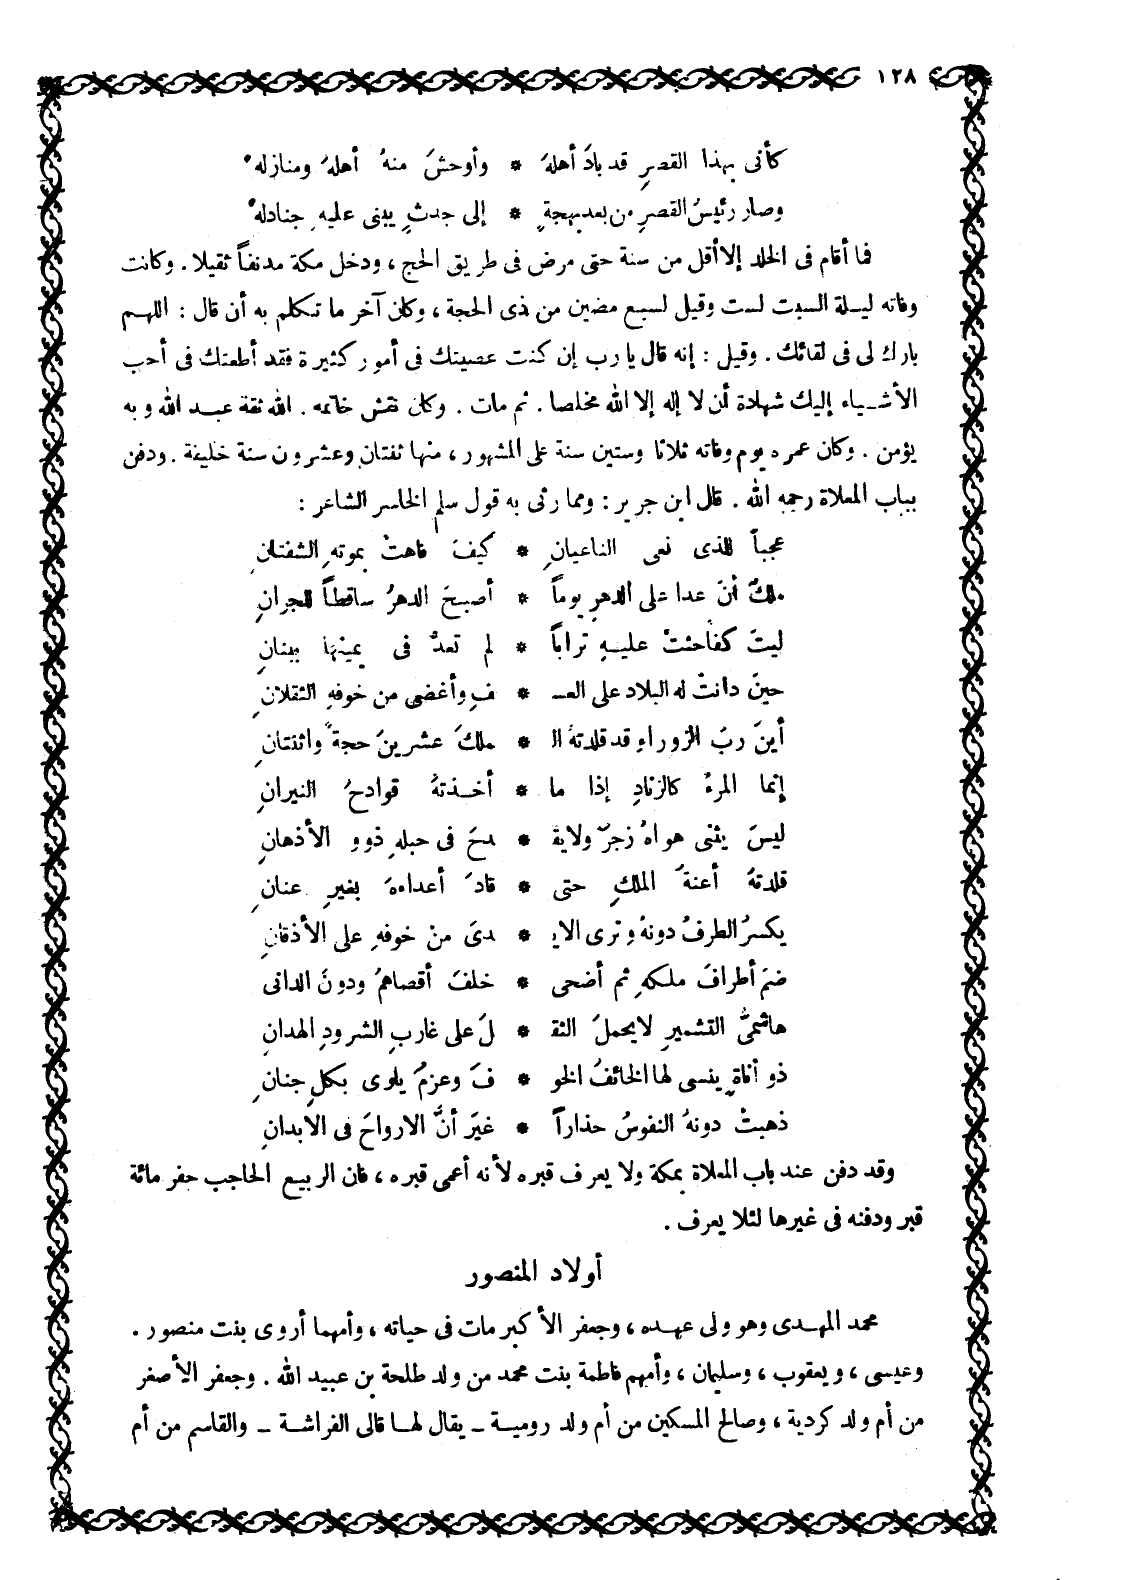 ١٢٨
كأنى بهذا القصرِ قد بادَ أهلهَ * وأوحشَ منهُ أهلهُ ومنازلهُ
وصار رئيسُ القصرِ من بعد بهجةٍ * إلى جدثٍ يبنى عليهِ جنادلهُ
فما أقام فى الخلد إلا أقل من سنة حتى مرض فى طريق الحج ، ودخل مكة مدنفاً ثقيلا . وكانت
وفاته ليلة السبت لست وقيل لسبع مضين من ذى الحجة ، وكان آخر ما تكلم به أن قال : اللهم
بارك لى فى لقائك . وقيل : إنه قال يا رب إن كنت عصيتك فى أمور كثيرة فقد أطعتك فى أحب
الأشياء إليك شهادة أن لا إله إلا الله مخلصا . ثم مات . وكان نقش خاتمه . الله ثقة عبد الله وبه
يؤمن . وكان عمره يوم وفاته ثلاثا وستين سنة على المشهور ، منها ثنتان وعشرون سنة خليفة . ودفن
بباب المعلاة رحمه الله . قال ابن جرير : ومما رئى به قول سلم الخاسر الشاعر :
عجباً للذى نعى الناعيانِ * كيفَ فاهتْ بموتهِ الشفتانِ
ملكٌ أنَ عدا على الدهرِ يوماً * أصبحَ الدهرُ ساقطاً للجرانِ
ليتَ كفاً حثتْ عليهِ تراباً * لم تعدْ فى يمينها ببنانِ
حينَ دانتْ له البلاد على العـ * ـفِ وأغضى من خوفهِ الثقلانِ
أينَ ربُ الزوراءِ قد قلدتهُ الـ * ـملكَ عشرينَ حجةً واثنتانِ
إنما المرءُ كالزنادِ إذا ما * أخذتهُ قوادحُ النيرانِ
ليسَ يثنى هواهُ زجرٌ ولا يقـ * ـدحَ فى حبلهِ ذوو الأذهانِ
قلدتهُ أعنةُ الملكِ حتى * قادَ أعداءهَ بغيرِ عنانِ
يكسرُ الطرفُ دونهُ وترى الايـ * ـدىَ منْ خوفهِ على الأذقانِ
ضمَ أطرافَ ملكهِ ثم أضحى * خلفَ أقصاهمُ ودونَ الدانى
هاشمىُّ التشميرِ لا يحملَ الثقـ * ـلَ على غاربِ الشرودِ الهدانِ
ذو أناةٍ ينسى لها الخائفُ الخو * فَ وعزمٌ يلوى بكلِ جنانِ
ذهبتْ دونهُ النفوسُ حذاراً * غيرَ أنَّ الارواحَ فى الابدانِ
وقد دفن عند باب المعلاة بمكة ولا يعرف قبره لأنه أعمى قبره ، فان الربيع الحاجب حفر مائة
قبر ودفنه فى غيرها لئلا يعرف .
أولاد المنصور
محمد المهدى وهو ولى عهده ، وجعفر الأكبر مات فى حياته ، وأمهما أروى بنت منصور .
وعيسى ، ويعقوب ، وسليمان ، وأمهم فاطمة بنت محمد من ولد طلحة بن عبيد الله . وجعفر الأصغر
من أم ولد كردية ، وصالح المسكين من أم ولد رومية ــ يقال لها قالى الفراشة ــ والقاسم من أم